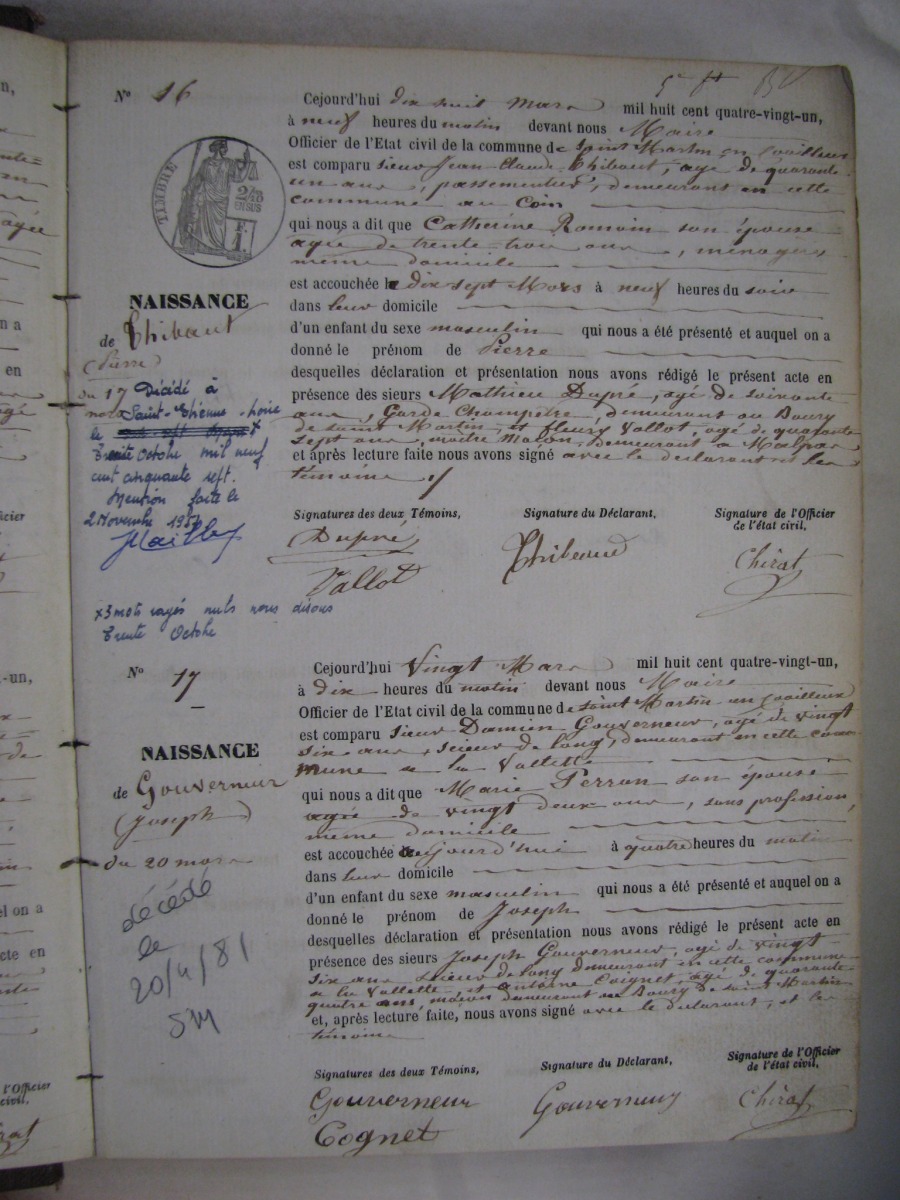 5e ft
N° 16
Cejourd'hui dix huit Mars mil huit cent quatre-vingt-un,
à neuf heures du matin devant nous Maire
Officier de l'Etat civil de la commune de Saint Martin en Coailleux
est comparu sieur Jean Claude Thibaut, agé de quarante
un ans, passementier, demeurant en cette
commune au Coin
qui nous a dit que Catherine Romain son épouse
agée de trente trois ans, ménagère
même domicile
est accouchée le dix sept Mars à neuf heures du soir
dans leur domicile
d'un enfant du sexe masculin qui nous a été présenté et auquel on a
donné le prénom de Pierre
desquelles déclaration et présentation nous avons rédigé le présent acte en
présence des sieurs Mathieu Dupré, agé de soixante
ans, Garde Champêtre, demeurant au Bourg
de saint Martin, et fleury Vallot, agé de quarante
sept ans, maître Maçon, demeurant a Malpas
et après lecture faite nous avons signé avec le declarant et les
témoins
TIMBRE
2/10
EN SUS
F.
1.
NAISSANCE
de Thibaut
(Pierre)
du 17
mars
Décédé à
Saint-Etienne-Loire
le
trente Octobre mil neuf
cent cinquante sept.
Mention faite le
2 Novembre 1957
x3 mots rayés nuls nous disons
trente Octobre
Signatures des deux Témoins,
Signature du Déclarant,
Signature de l'Officier
de l'état civil,
Dupré
Vallot
Thibaud
Chirat
N° 17
Cejourd'hui Vingt Mars mil huit cent quatre-vingt-un,
à dix heures du matin devant nous Maire
Officier de l'Etat civil de la commune de saint Martin en Coailleux
est comparu sieur Damien Gouverneur, agé de vingt
six ans, scieur de long, demeurant en cette com
mune a la Valette
qui nous a dit que Marie Perran son épouse
agée de vingt deux ans, sans profession,
même domicile
est accouchée aujourd'hui à quatre heures du matin
dans leur domicile
d'un enfant du sexe masculin qui nous a été présenté et auquel on a
donné le prénom de Joseph
desquelles déclaration et présentation nous avons rédigé le présent acte en
présence des sieurs Joseph Gouverneur, agé de vingt
six ans scieur de long demeurant en cette commune
a la Vallette, et antoine Coignet, agé de quarante
quatre ans, maçon demeurant au Bourg de saint Martin
et, après lecture faite, nous avons signé avec le declarant, et les
témoins
NAISSANCE
de Gouverneur
(Joseph)
du 20 mars
décédé
le
20/4/81
SM
Signatures des deux Témoins,
Signature du Déclarant,
Signature de l'Officier
de l'état civil,
Gouverneur
Cognet
Gouverneur
Chirat